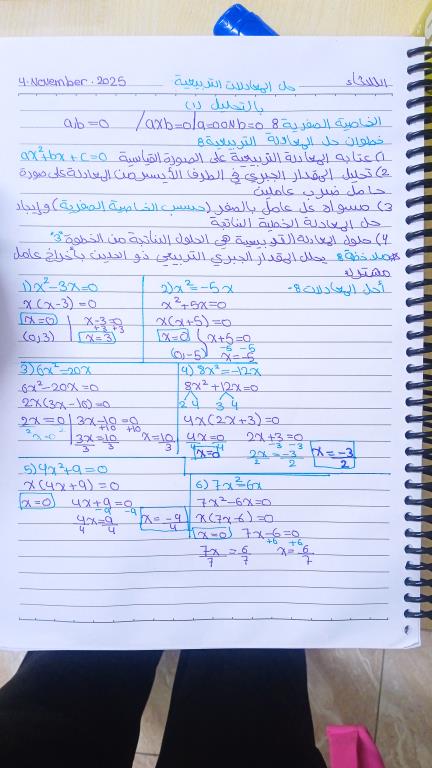 4. November. 2025 حل المعادلات التربيعية الثلاثاء
بالتحليل (1)
الخاصية الصفرية 8 a.b=0 / axb=0 / a=0 OR b=0
خطوات حل المعادلة التربيعية 8
1) كتابة المعادلة التربيعية على الصورة القياسية ax²+bx+c=0
2) تحليل المقدار الجبري في الطرف الأيسر من المعادلة على صورة
حاصل ضرب عاملين
3) مساواة كل عامل بالصفر (حسب الخاصية الصفرية) وإيجاد
حل المعادلة الخطية الناتجة
4) حلول المعادلة التربيعية هي الحلول الناتجة من الخطوة "3"
* ملاحظة 8 يحلل المقدار الجبري التربيعي ذو الحدين بأخراج عامل
مشترك
أحل المعادلات 8-
1) x²-3x=0
x(x-3)=0
x=0 x-3=0
+3 +3
(0,3) x=3
2) x²=-5x
x²+5x=0
x(x+5)=0
x=0 x+5=0
-5 -5
(0,-5) x=-5
3) 6x²=20x
6x²-20x=0
2x(3x-10)=0
2x=0 3x-10=0
+10 +10
x=0 3x=10 x=10
3 3 3
4) 8x²=-12x
8x²+12x=0
2 4 3 4
4x(2x+3)=0
4x=0 2x+3=0
4 4 -3 -3
x=0 2x=-3 x=-3
2 2 2
5) 4x²+9=0
x(4x+9)=0
x=0 4x+9=0
-9 -9
4x=9 x=-9
4 4 4
6) 7x²=6x
7x²-6x=0
x(7x-6)=0
x=0 7x-6=0
+6 +6
7x=6 x=6
7 7 7